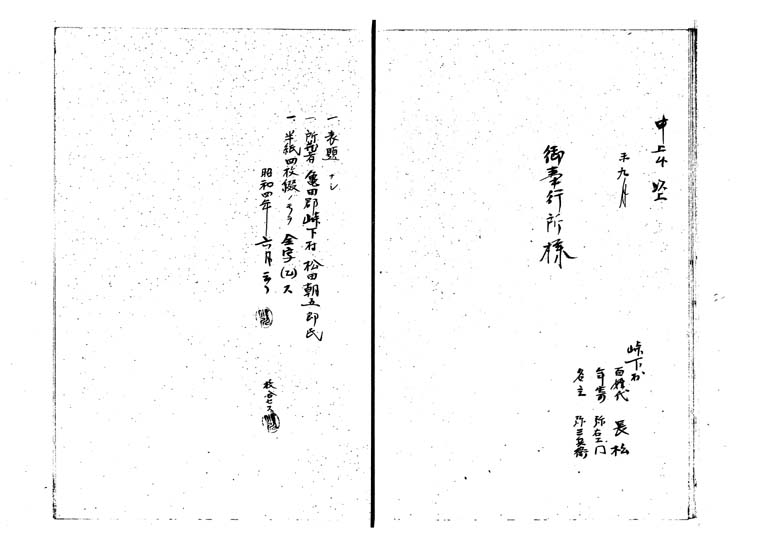 申上候 以上
子九月
峠下村
百姓代 長松
年寄 弥右エ門
名主 弥三兵衛
御奉行所様
一 表題 ナシ
一 所蔵者 亀田郡峠下村 松田朝五郎氏
一 半紙四枚綴ノモノ 全写(乙)ス
昭和四年六月
校合セス